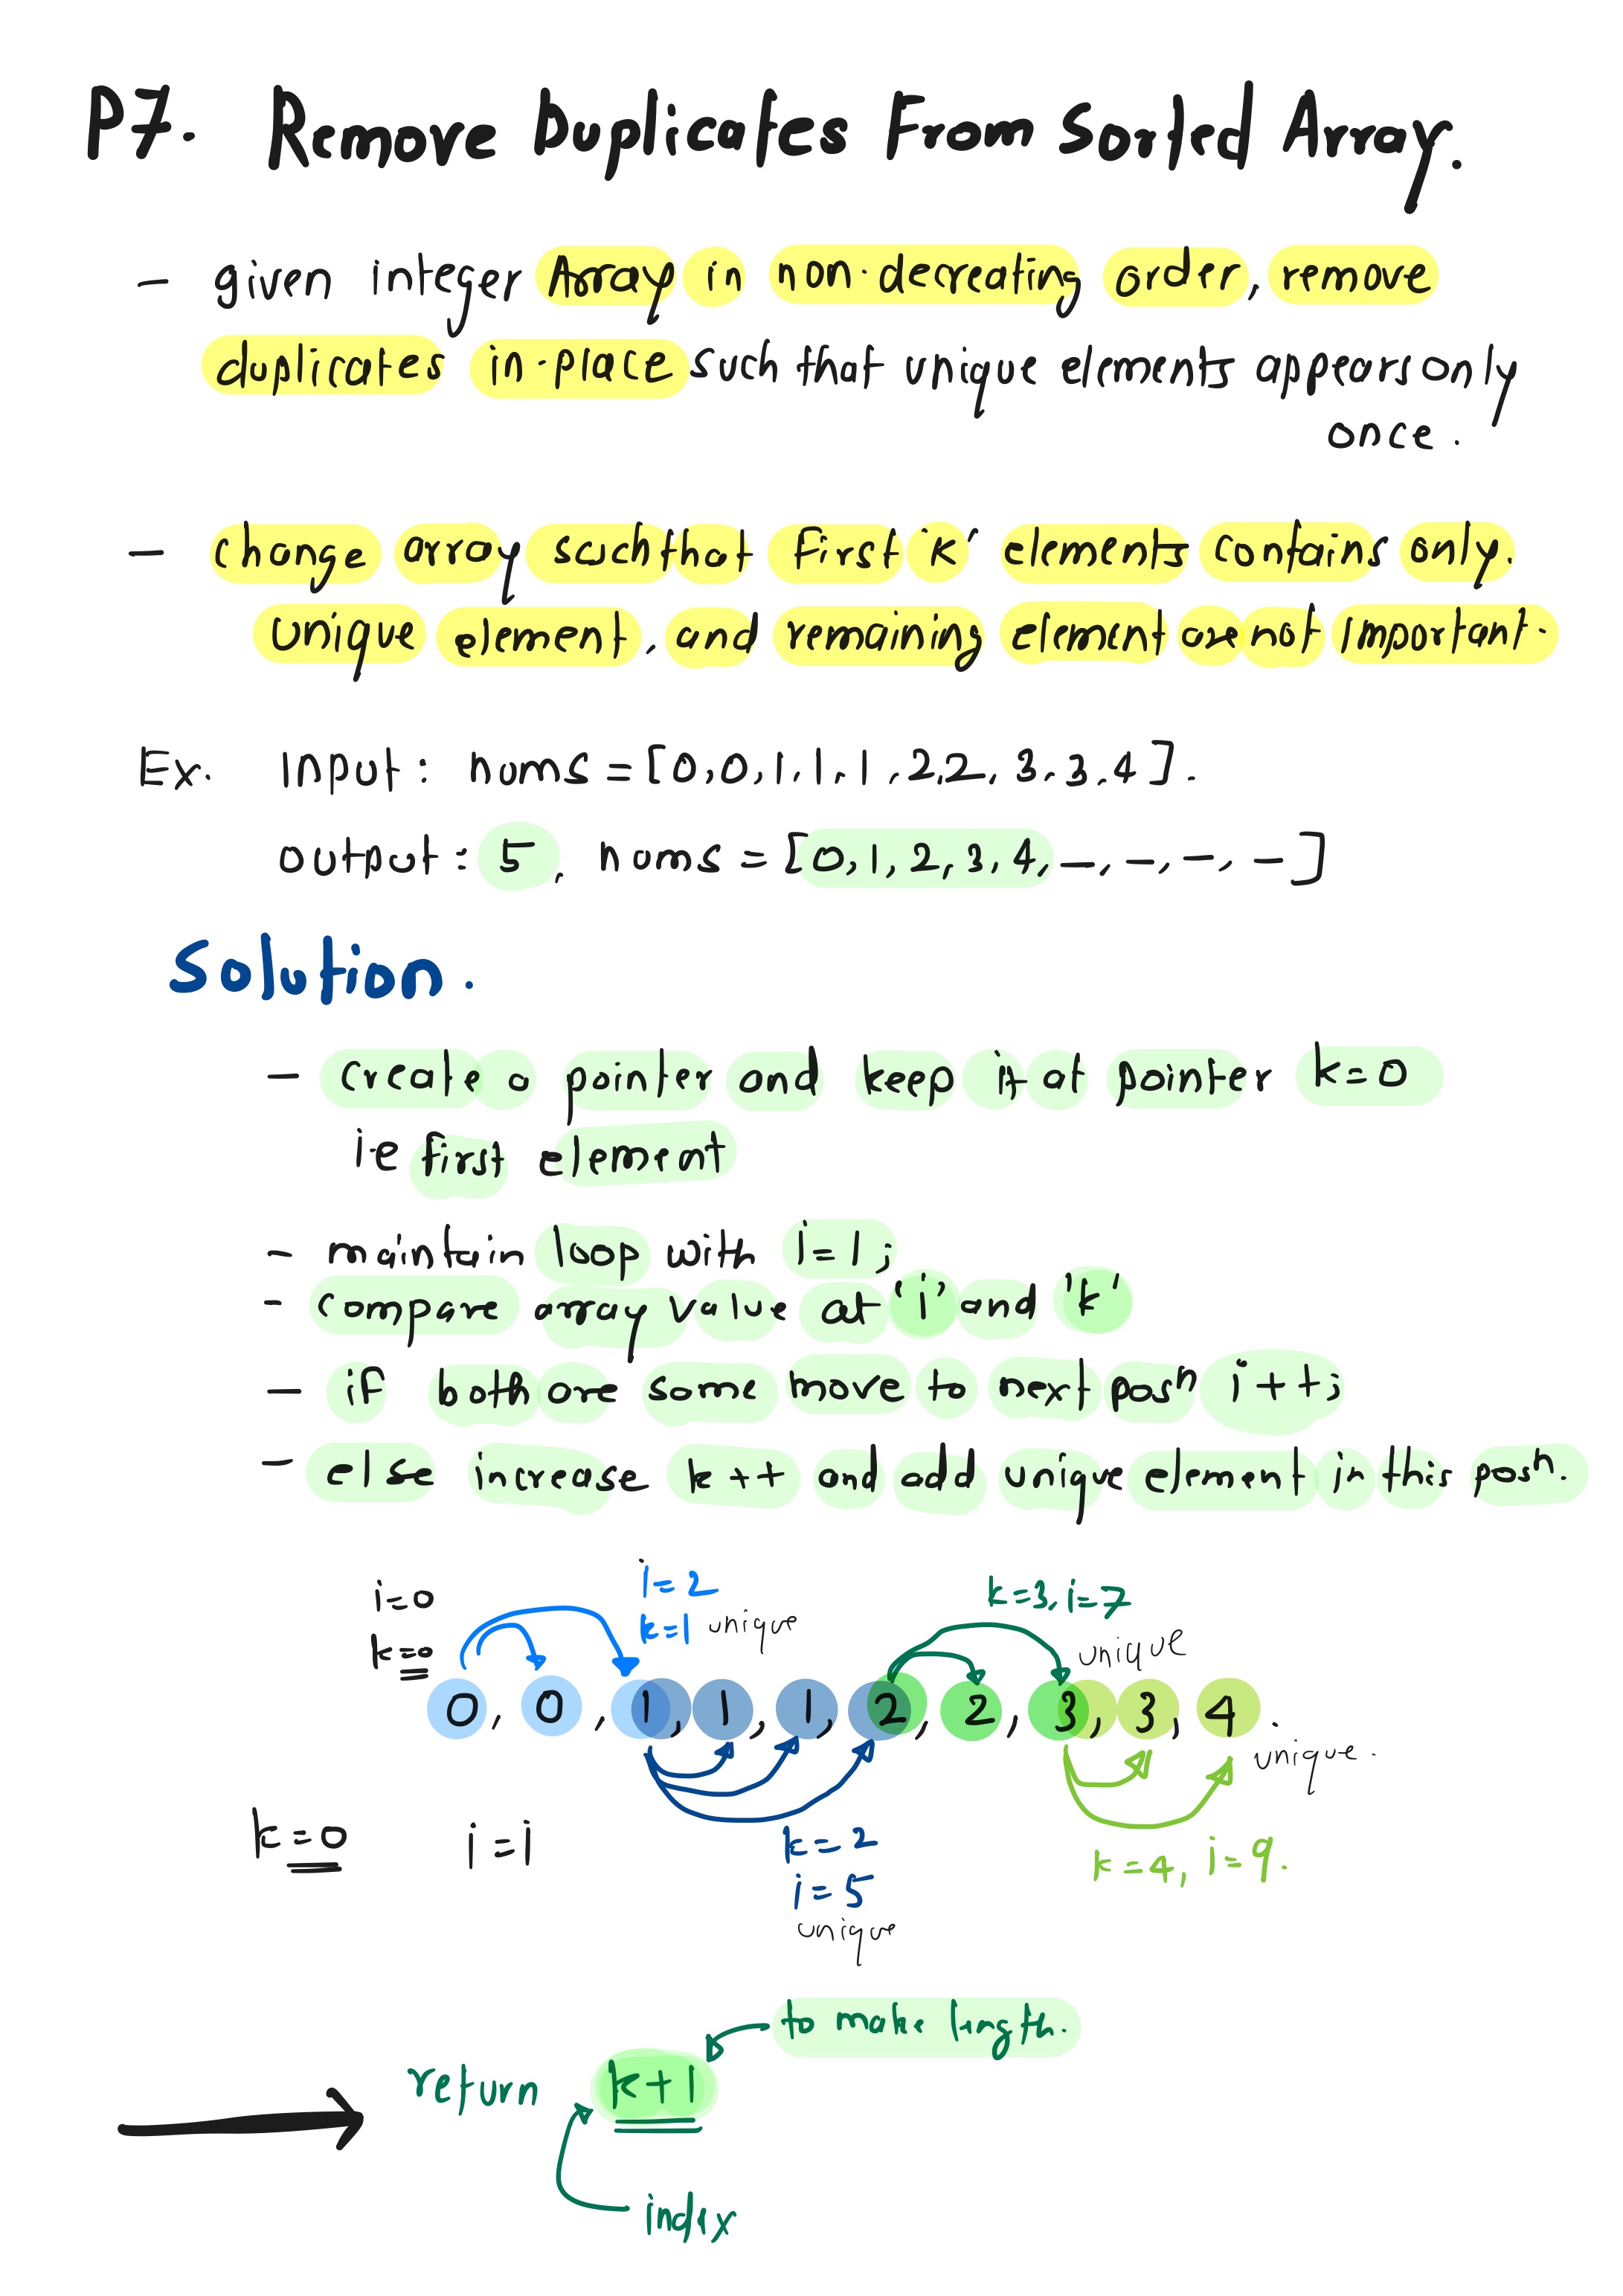 P7. Remove Duplicates From Sorted Array.
- given integer Array in non-decreating order, remove
duplicates in-place such that unique elements appears only
once.
- change array such that first 'k' elements contains only.
unique element, and remaining element are not important.
Ex. Input: nums = [0,0,1,1,1,2,2,3,3,4].
output: 5, nums = [0,1,2,3,4,_,_,_,_]
Solution.
- create a pointer and keep it at pointer k=0
i.e first element
- maintain loop with i=1;
- compare array value at 'i' and 'k'
- if both are same move to next posn i++;
- else increase k++ and add unique element in this posn.
i=0
k=0
i=2
k=1 unique
k=3, i=7
unique
0, 0, 1, 1, 1, 2, 2, 3, 3, 4.
unique.
k=0 i=i
k=2
i=5
unique
k=4, i=9.
to make length.
return k+1
index